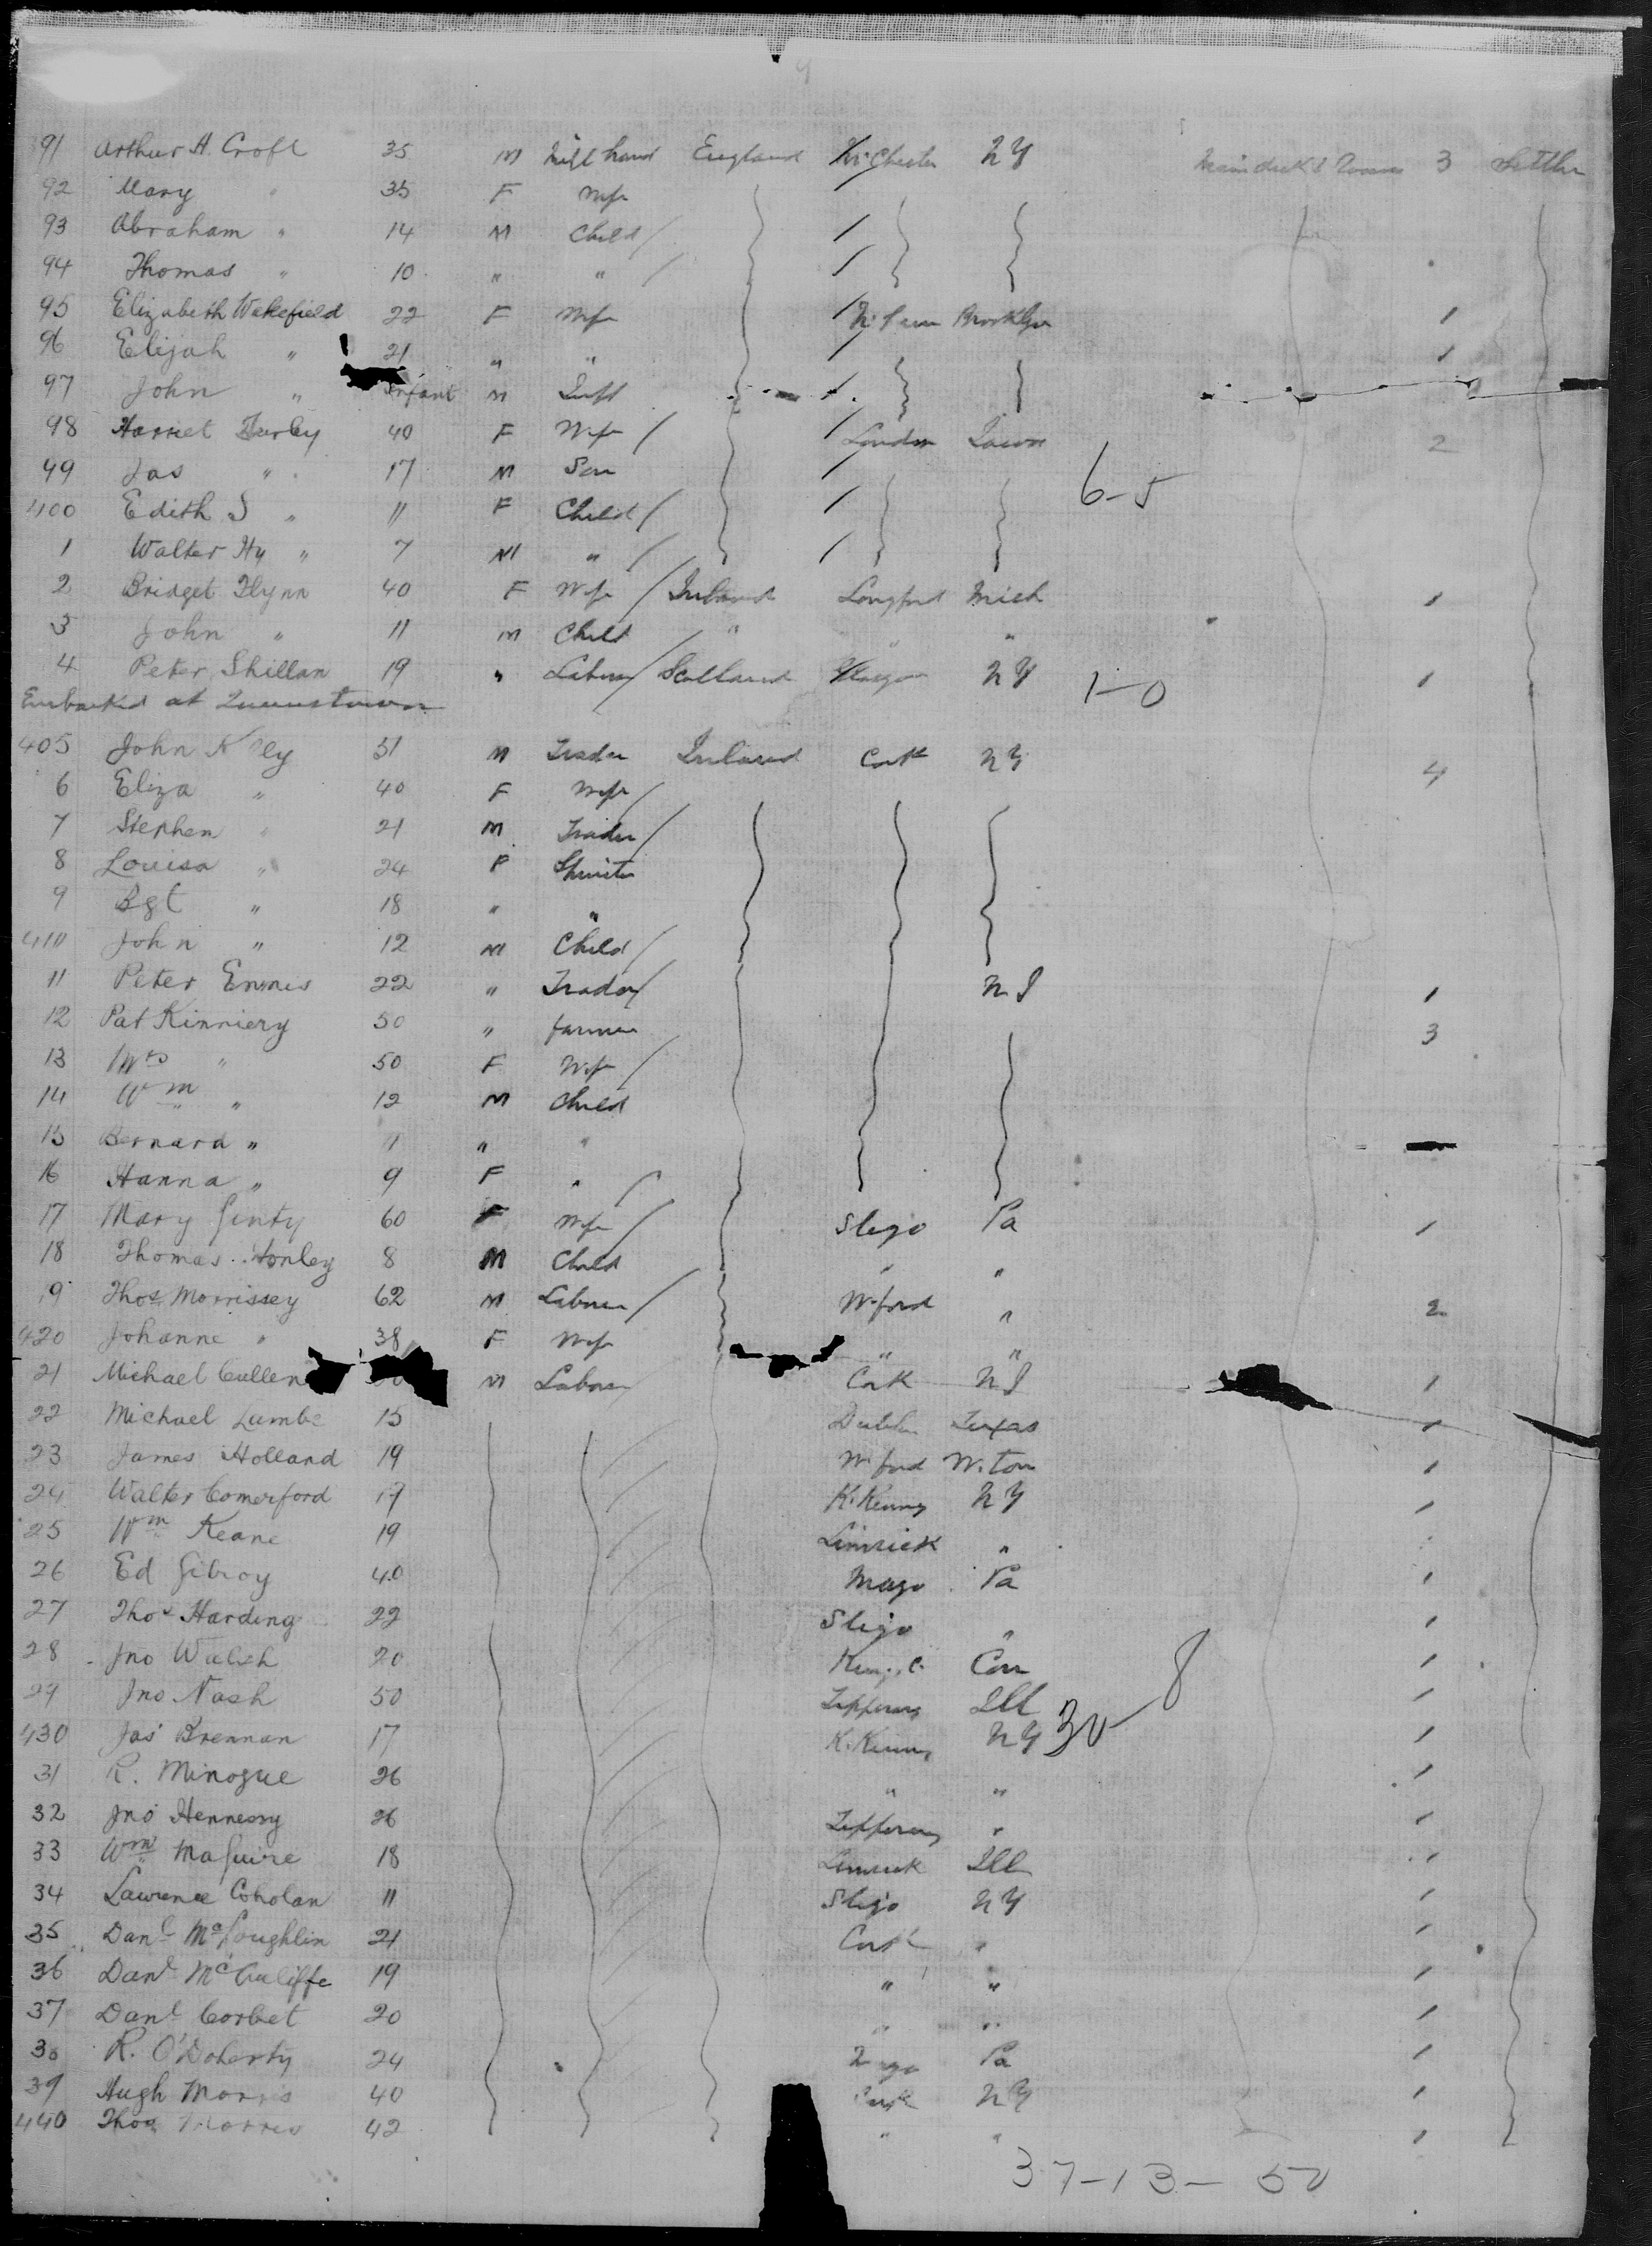 9
91 Arthur H. Croft 35 M Mill hand England W. Chester NY 3 Settler
92 Mary " 35 F Wife
93 Abraham " 14 M Child /
94 Thomas " 10 " " /
95 Elizabeth Wakefield 22 F Wife Brooklyn 1
96 Elijah " 21 " " 1
97 John " Infant M Inft
98 Harriet Turley 40 F Wife / London Iowa 2
99 Jas " 17 M Son
400 Edith S " 11 F Child / 6-5
1 Walter Hy " 7 M " /
2 Bridget Flynn 40 F Wife / Ireland Longford Mich 1
3 John " 11 M Child " "
4 Peter Shillan 19 " Laborer / Scotland Glasgow NY 1-0 1
Embarked at Queenstown
405 John 51 M Trader Ireland Cork NY 4
6 Eliza " 40 F Wife /
7 Stephen " 21 M Trader /
8 Louisa " 24 F Spinster
9 Bgt " 18 " "
410 John " 12 M Child /
11 Peter Ennis 22 " Trader / NJ 1
12 Pat Kinniery 50 " farmer 3
13 Mrs " 50 F Wife /
14 Wm " 12 M Child
15 Bernard " 11 " "
16 Hanna " 9 F " /
17 Mary Ginty 60 F Wife / Sligo Pa 1
18 Thomas 8 M Child " "
19 Thos Morrissey 62 M Laborer / W.ford " 2
420 Johanne " 38 F Wife " "
21 Michael Cullen M Laborer Cork NJ 1
22 Michael Lambe 15 Dublin Texas 1
23 James Holland 19 W.ford W.ton 1
24 Walter Comerford 17 K.Kenny NY 1
25 Wm Keane 19 Limrick "
26 Ed Gilroy 40 Mayo Pa 1
27 Thos Harding 22 Sligo " 1
28 Jno Walsh 20 Kings C. Con 1
29 Jno Nash 50 Tipperary Ill 30-8 1
430 Jas Brennan 17 K.Kenny NY 1
31 R. Minogue 26 " " 1
32 Jno Hennessy 26 Tipperary " 1
33 Wm Maguire 18 Limrick Ill 1
34 Lawrence Coholan 11 Sligo NY 1
35 Danl McLoughlin 21 Cork " 1
36 Danl McAuliffe 19 " " 1
37 Danl Corbet 20 " " 1
38 R. O'Doherty 24 Pa 1
39 Hugh Morris 40 Cork NY 1
440 Thos Morris 42 " " 1
37-13-50